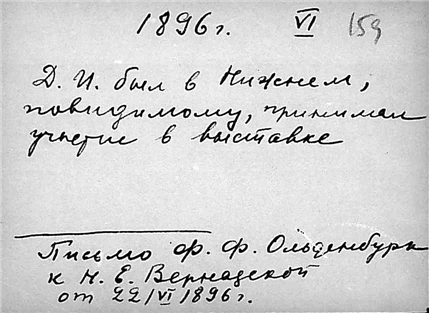 1896г. VI 159
Д. И. был в Нижнем,
повидимому, принимал
участие в выставке
Письмо Ф. Ф. Ольденбурга
к Н. Е. Вернадской
от 22/VI 1896г.